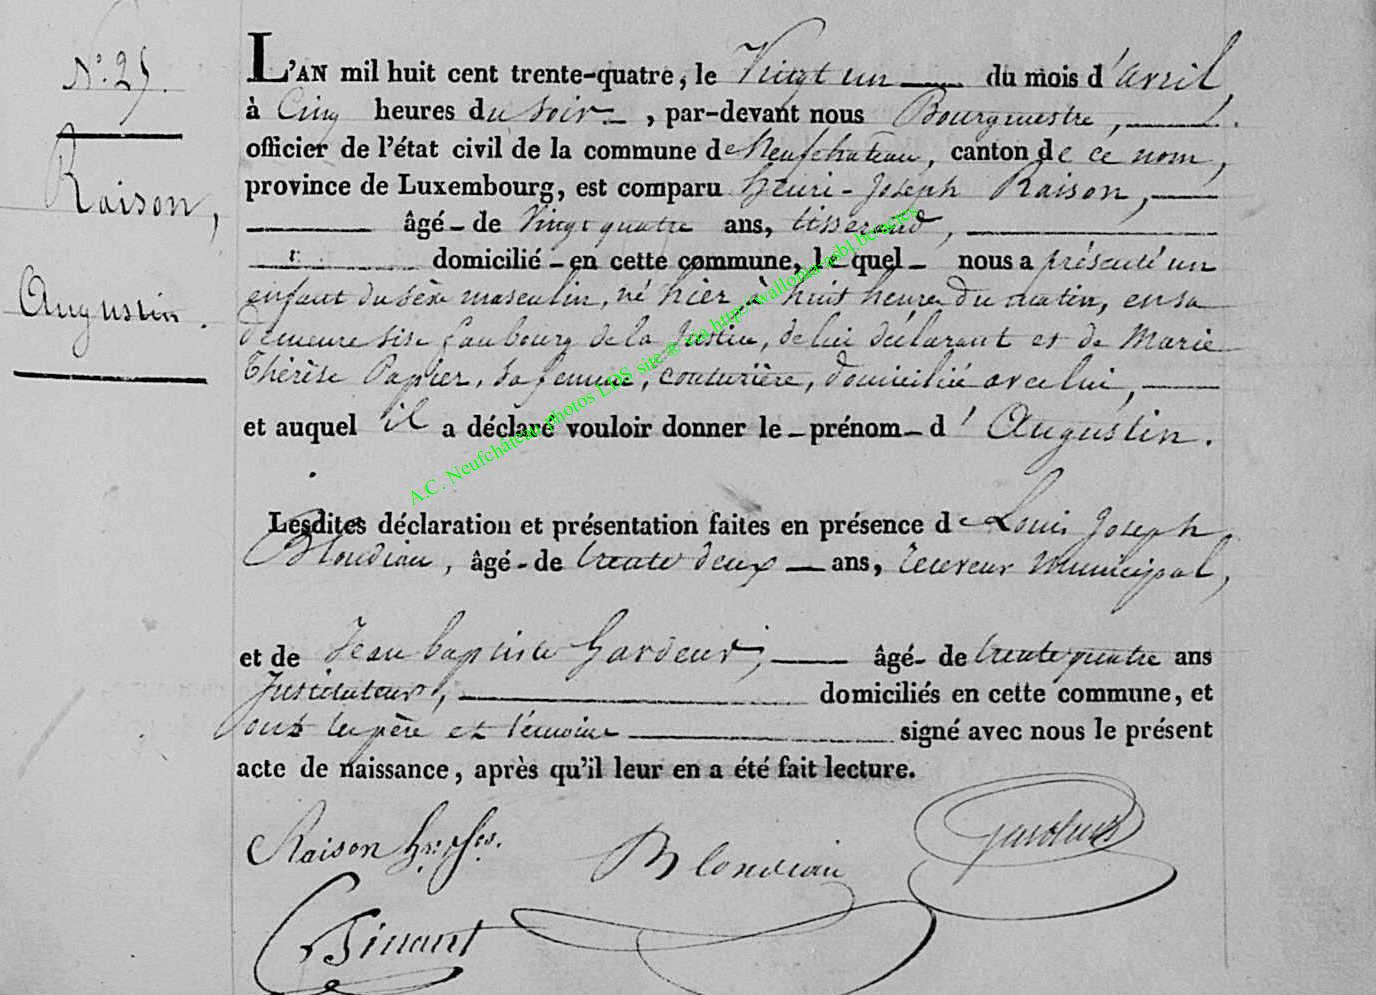 N.° 25.
Raison,
Augustin.
L'AN mil huit cent trente-quatre, le Vingt un du mois d'avril,
à Cinq heures du soir, par-devant nous Bourgmestre,
officier de l'état civil de la commune de Neufchateau, canton de ce nom,
province de Luxembourg, est comparu henri-Joseph Raison,
âgé-de Vingt quatre ans, tisserand,
domicilié-en cette commune, le-quel-nous a présenté un
enfant du sexe masculin, né hier à huit heures du matin, en sa
demeure sise faubourg de la Justice, de lui déclarant et de Marie
Thérèse Papier, sa femme, couturière, domiciliée avec lui,
et auquel il a déclaré vouloir donner le-prénom-d'Augustin.
Lesdites déclaration et présentation faites en présence de Louis Joseph
Blondiau, âgé-de trente deux ans, receveur Municipal,
et de Jean baptiste Gardeur, âgé-de trente quatre ans
Instituteur, domiciliés en cette commune, et
ont les père et témoins signé avec nous le présent
acte de naissance, après qu'il leur en a été fait lecture.
Raison
Blondiau
A.C. Neufchâteau photos LDS site